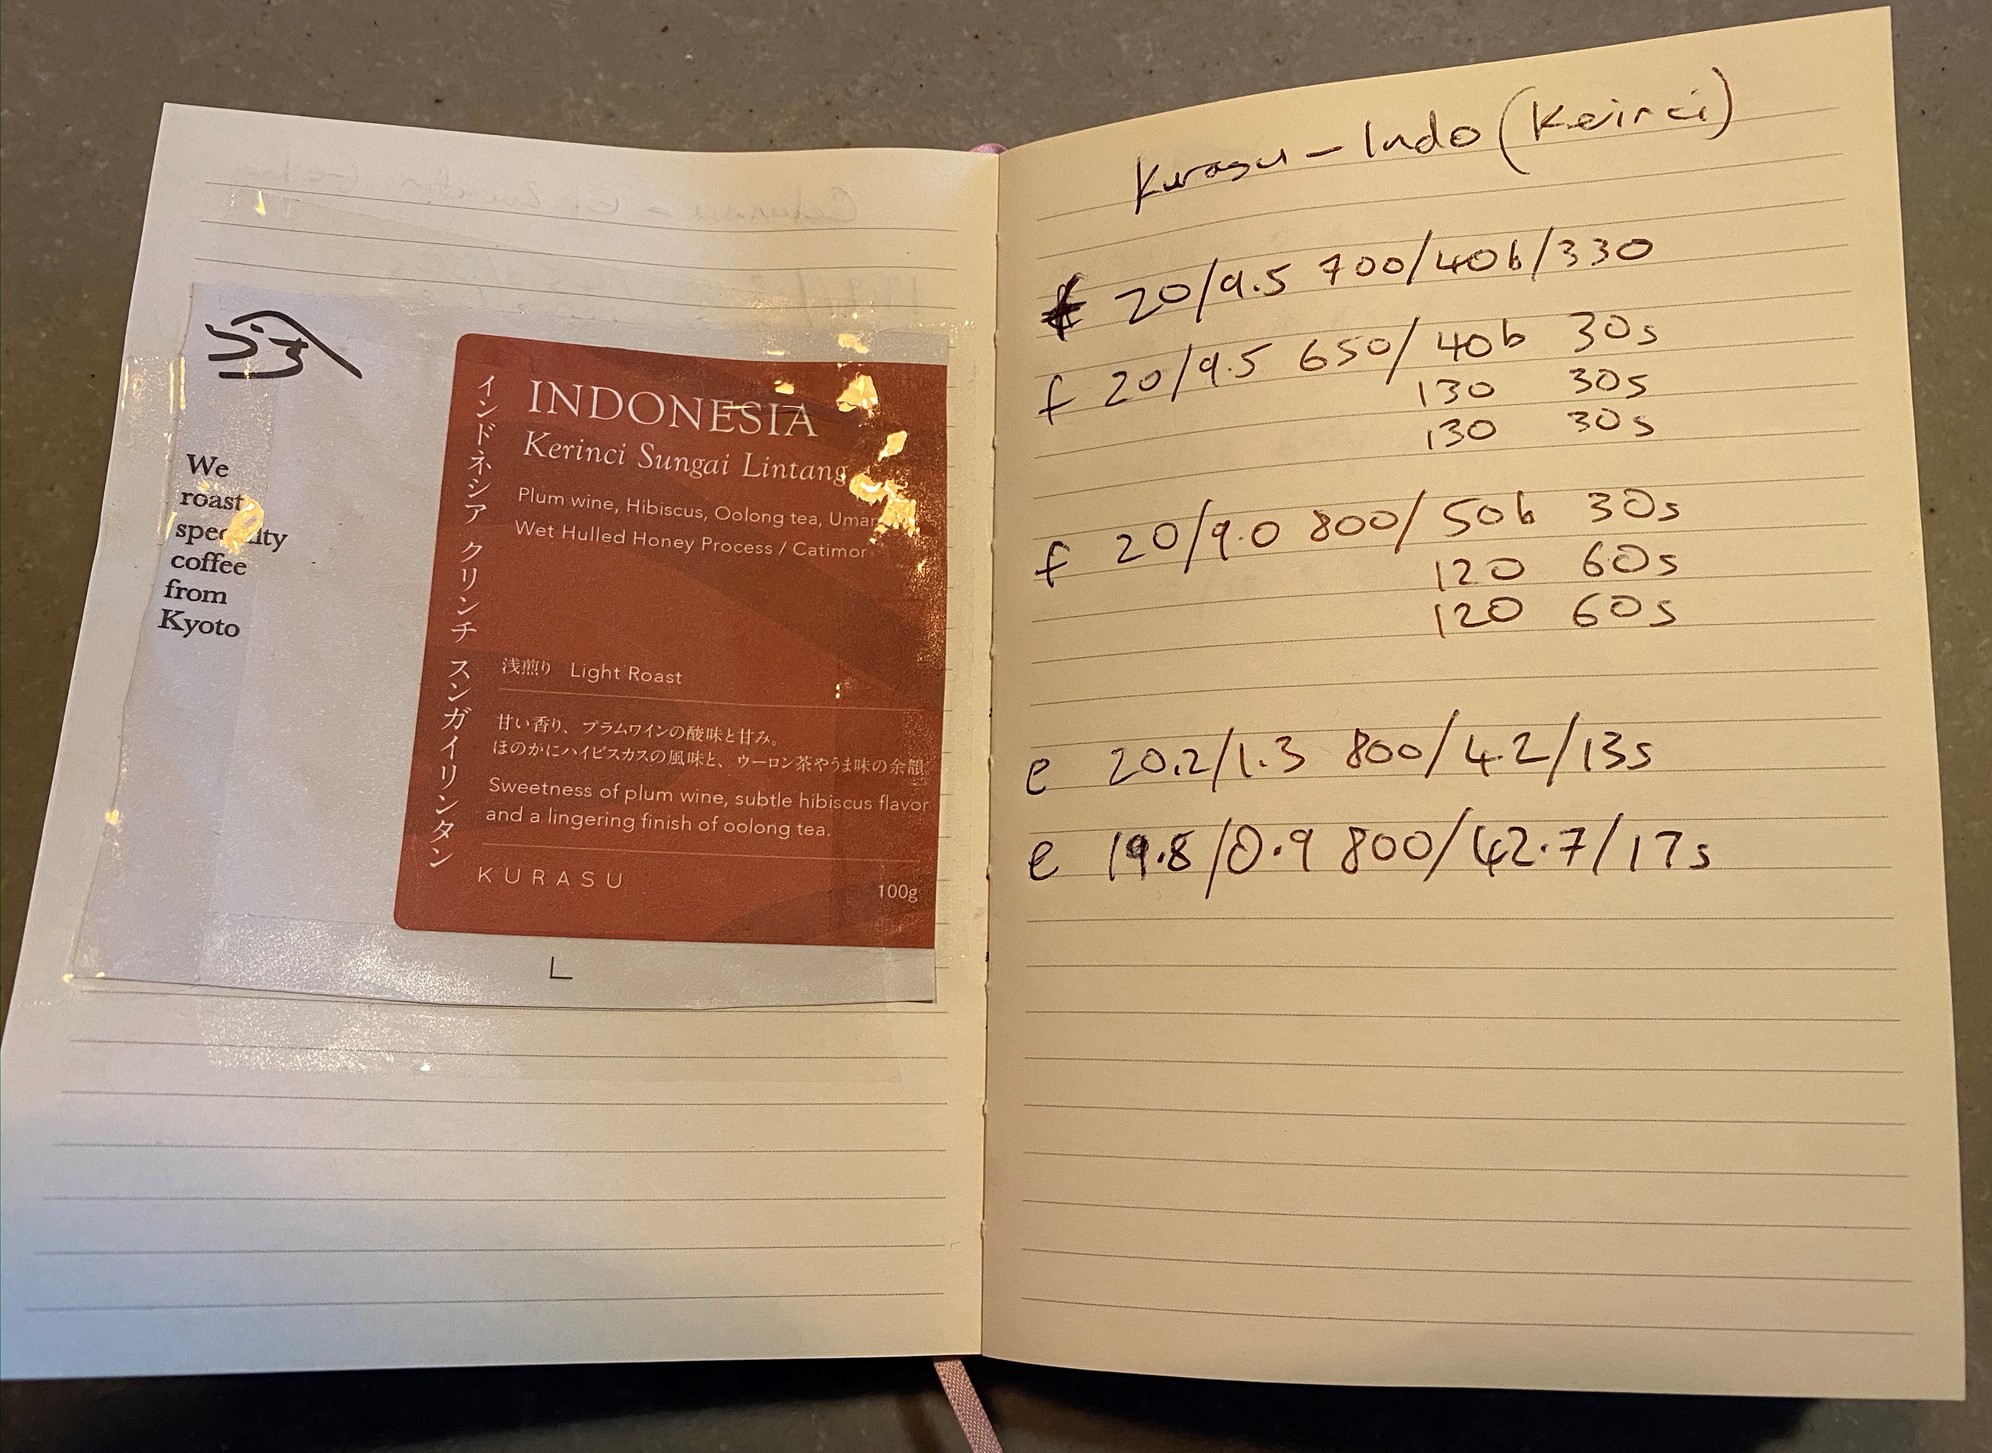 We
roast
coffee
from
Kyoto
インドネシア クリンチ スンガイリンタン
INDONESIA
Kerinci Sungai Lintang
Plum wine, Hibiscus, Oolong tea,
Wet Hulled Honey Process / Catimor
浅煎り Light Roast
甘い香り、プラムワインの酸味と甘み。
ほのかにハイビスカスの風味と、ウーロン茶やうま味の余韻
Sweetness of plum wine, subtle hibiscus flavor
and a lingering finish of oolong tea.
KURASU
100g
Kurasu - Indo (Keirci)
f 20/9.5 700/40b/330
f 20/9.5 650/40b 30s
130 30s
130 30s
f 20/9.0 800/50b 30s
120 60s
120 60s
e 20.2/1.3 800/42/13s
e 19.8/0.9 800/42.7/17s